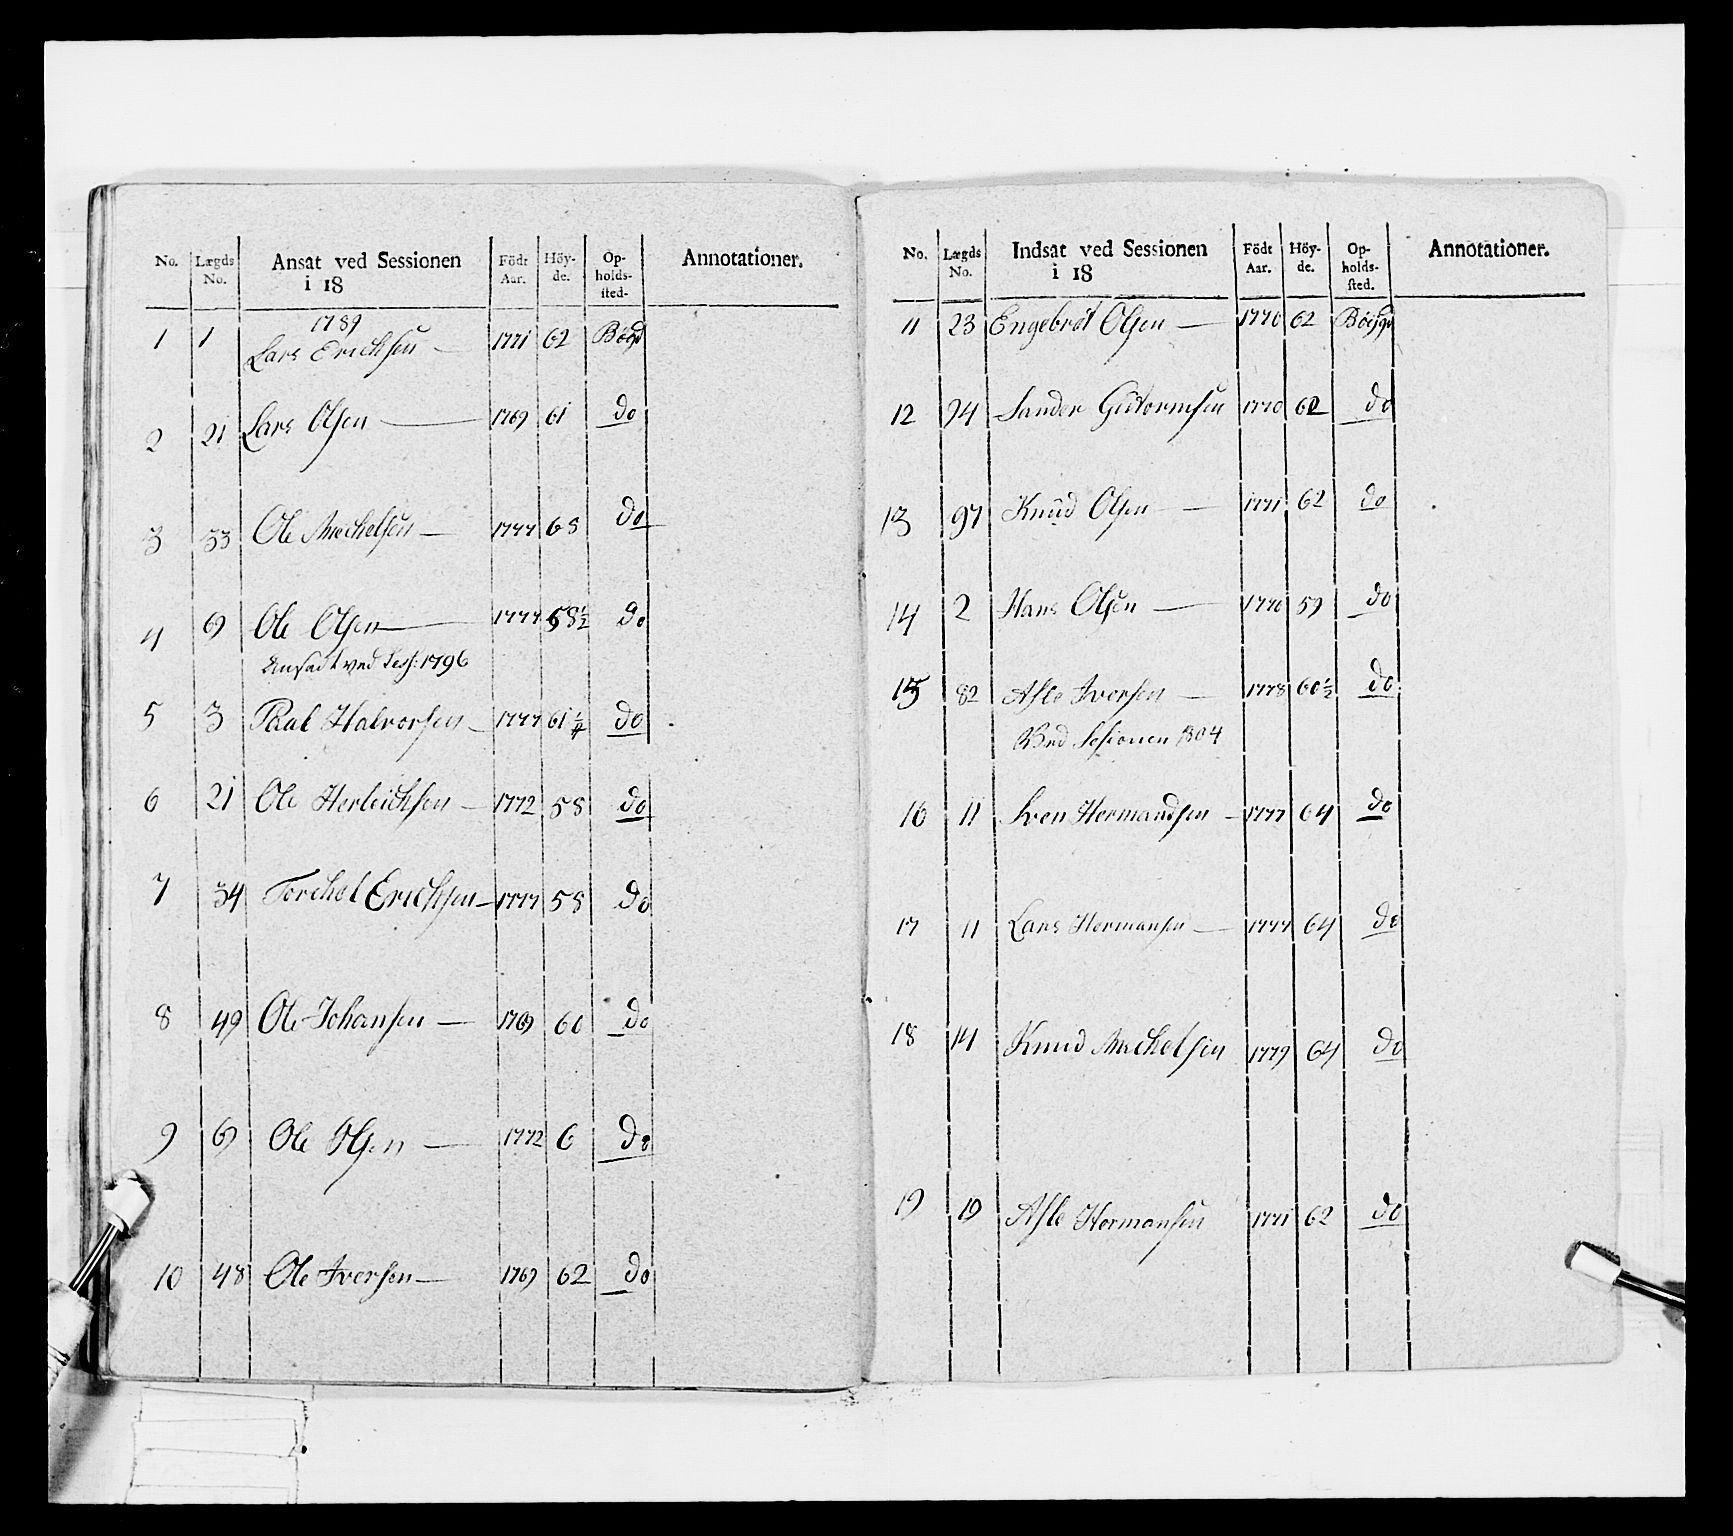 No. Lægds No. Ansat ved Sessionen i 18 Födt Aar. Höy-de. Op-holds-sted. Annotationer.
1789
1 1 Lars Erichsen — 1771 62 Bögd
2 21 Lars Olsen — 1769 61 do
3 33 Ole Michelsen — 1777 68 do
4 69 Ole Olsen — 1777 58½ do
Ansadt ved Sess: 1796
5 3 Paal Halvorsen — 1777 61¼ do
6 21 Ole Herbrichsen — 1772 58 do
7 34 Torchel Erichsen — 1777 58 do
8 49 Ole Johansen — 1769 60 do
9 69 Ole Olsen — 1772 6 do
10 48 Ole Iversen — 1769 62 do
No. Lægds No. Indsat ved Sessionen i 18 Födt Aar. Höy-de. Op-holds-sted. Annotationer.
11 23 Engebret Olsen — 1770 62
12 94 Sander Gutormsen 1770 62 do
13 97 Knud Olsen — 1771 62 do
14 2 Hans Olsen — 1770 59 do
15 82 Asle Iversen — 1778 60½ do
Ved Sesionen 1804
16 11 Sven Hermandsen — 1777 64 do
17 11 Lars Hermansen — 1777 64 do
18 14 Knud Michelsen 1779 64 do
19 19 Asle Hermansen 1771 62 do